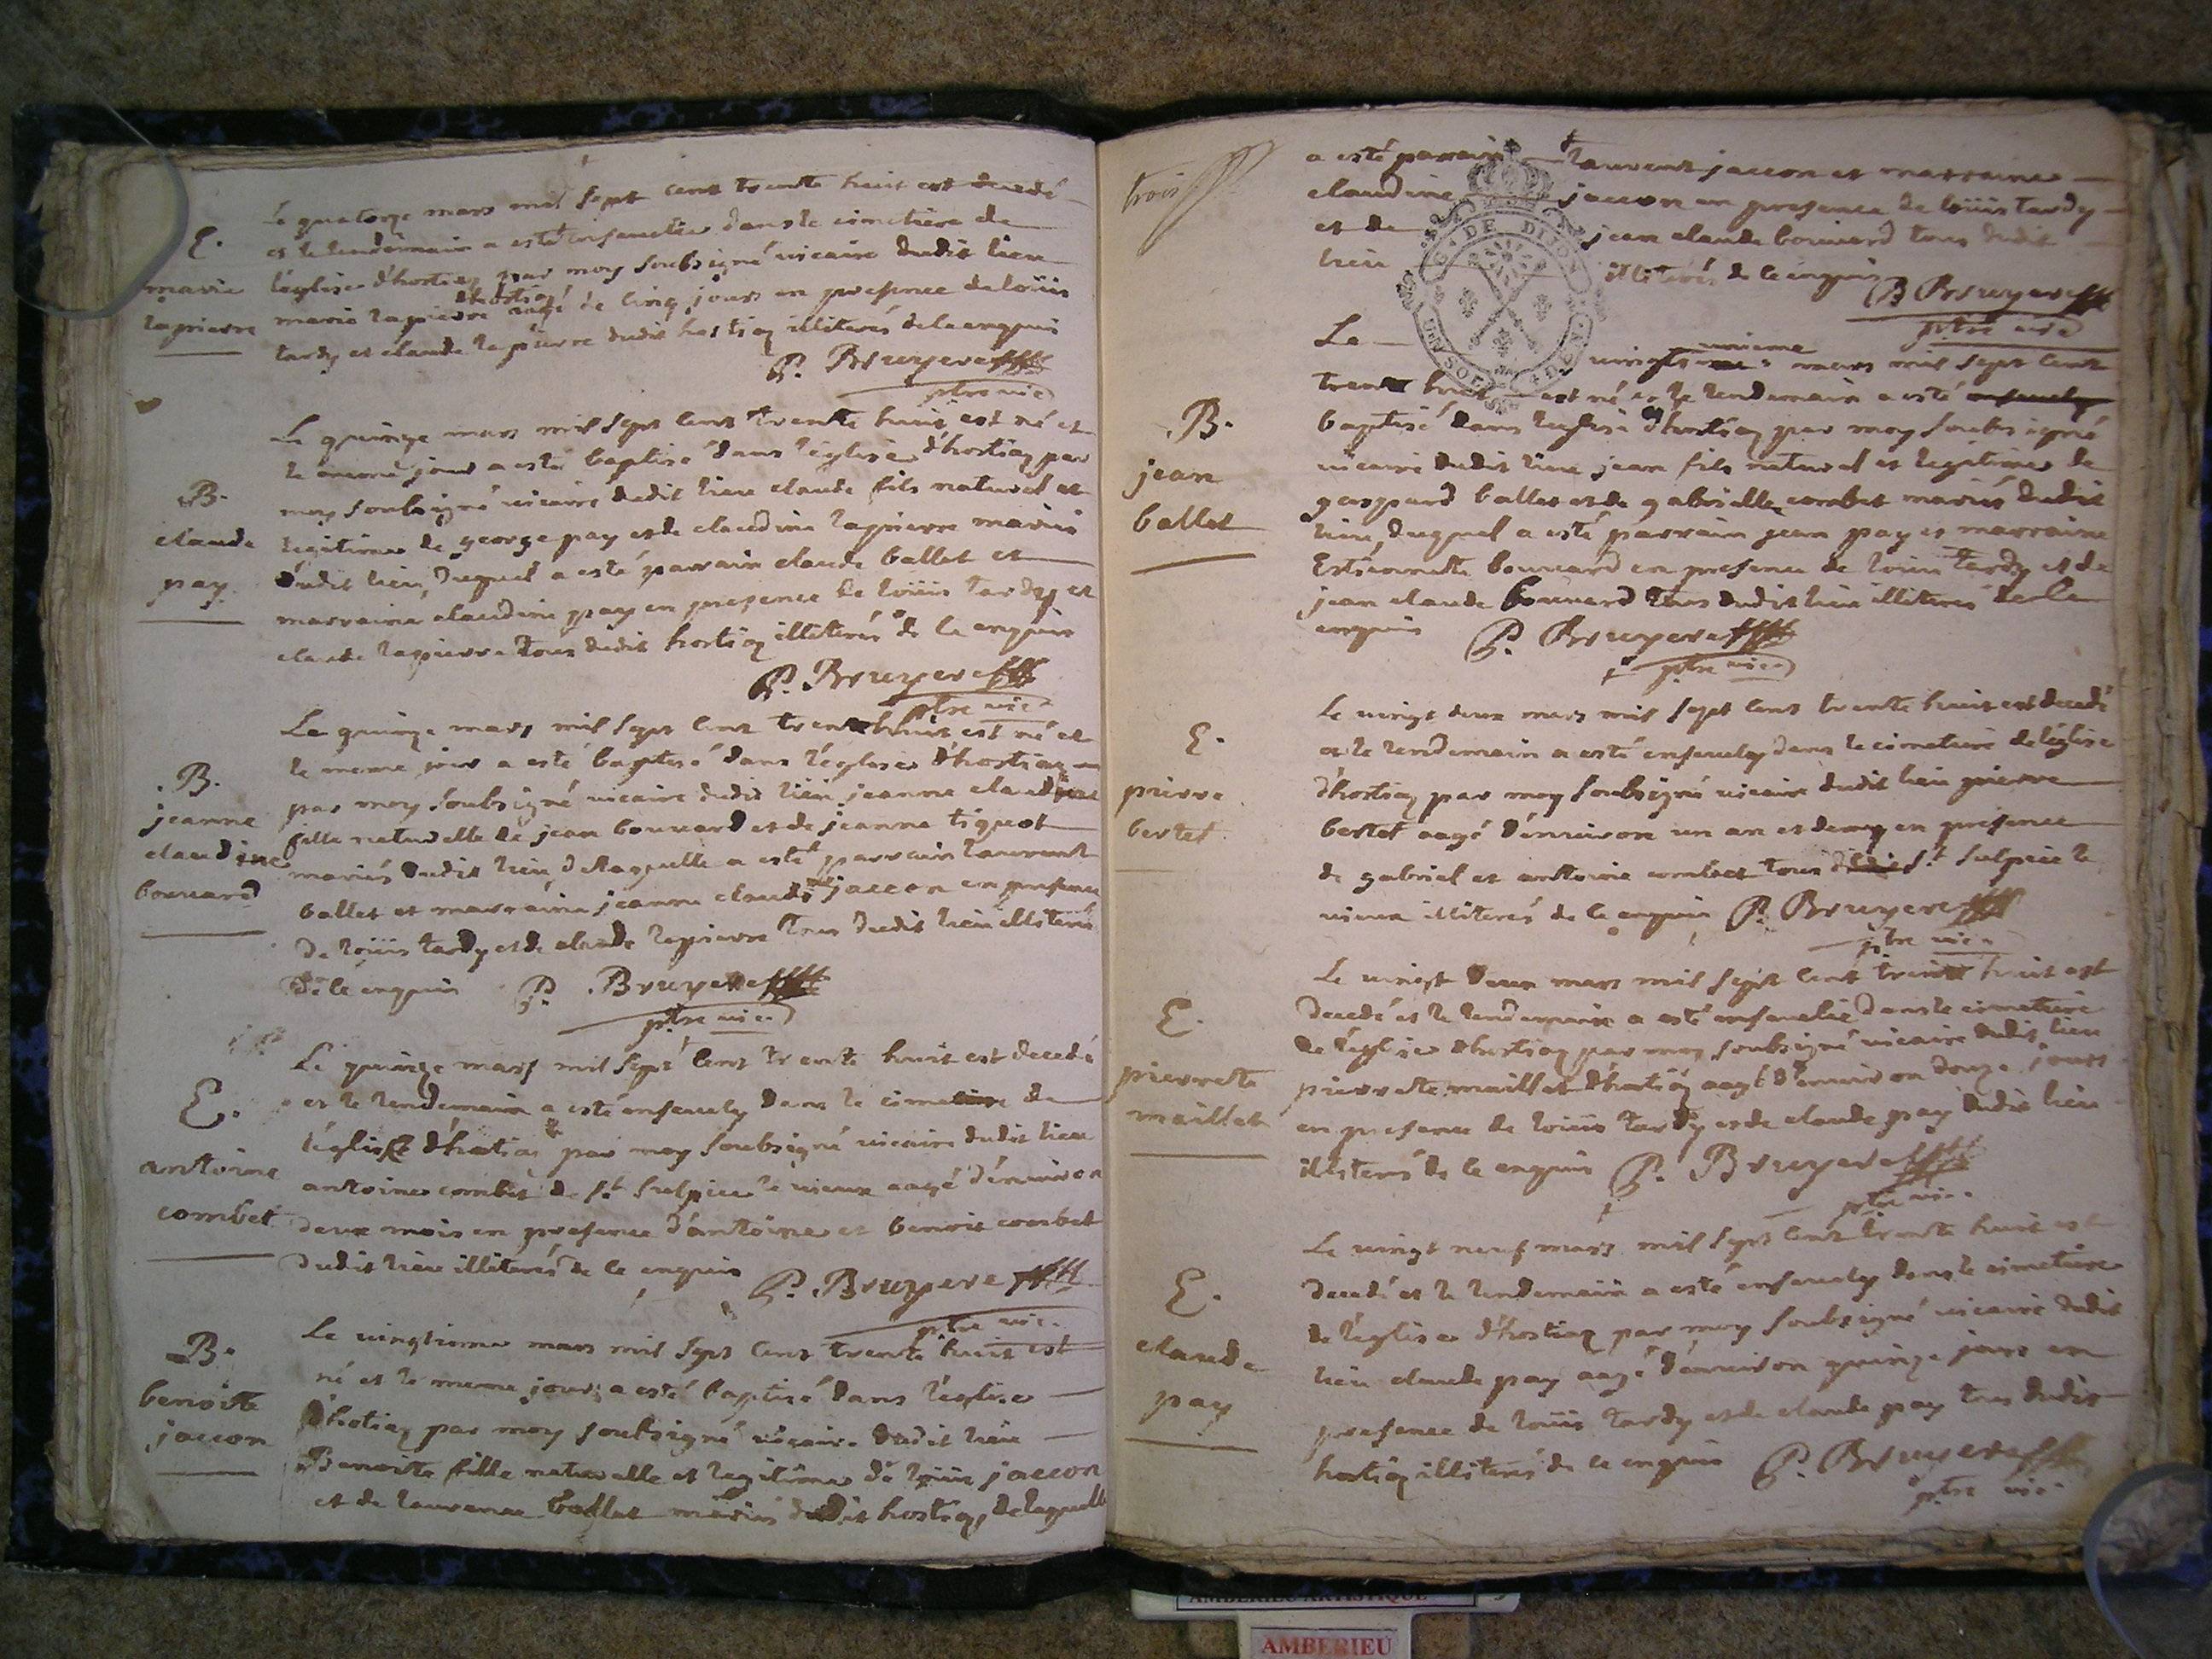 E.
marie
lapierre
Le quatorze mars mil sept cent trente huit est decedé
et le lendemain a esté ensevelie dans le cimetiere de
l'église d'hostiaz par moy soubsigné vicaire dudit lieu
d'hostiaz
marie lapierre aagé de cinq jours en presence de loüis
tardy et claude lapierre dudit hostiaz illiterés de ce enquis
P. Bruyere
ptre vic.
B.
claude
pay
Le quinze mars mil sept cent trente huit est né et
le meme jour a esté baptisé dans l'église d'hostiaz par
moy soubsigné vicaire dudit lieu claude fils naturel et
legitime de george pay et de claudine lapierre mariés
dudit lieu, duquel a esté parrain claude ballet et
marraine claudine pay en presence de loüis tardy et
claude lapierre tous dudit hostiaz illiterés de ce enquis
P. Bruyere
ptre vic.
B.
jeanne
claudine
bouvard
Le quinze mars mil sept cent trente huit est né et
le meme jour a esté baptisé dans l'église d'hostiaz
par moy soubsigné vicaire dudit lieu jeanne claudine
fille naturelle de jean bouvard et de jeanne tiquet
mariés dudit lieu, de laquelle a esté parrain laurent
ballet et marraine jeanne claudine jaccon en presence
de loüis tardy et de claude lapierre tous dudit lieu illiterés
de ce enquis P. Bruyere
ptre vic.
E.
antoine
combet
Le quinze mars mil sept cent trente huit est decedé
et le lendemain a esté ensevely dans le cimetiere de
l'église d'hostiaz par moy soubsigné vicaire dudit lieu
antoine combet de st sulpice le vieux aagé d'environ
deux mois en presence d'antoine et benoit combet
dudit lieu illiterés de ce enquis P. Bruyere
ptre vic.
B.
benoite
jaccon
Le vingtieme mars mil sept cent trente huit est
né et le meme jour a esté baptisé dans l'église
d'hotiaz par moy soubsigné vicaire dudit lieu
Benoite fille naturelle et legitime de loüis jaccon
et de laurence ballet mariés dudit hostiaz, de laquelle
trois
a esté parrain laurent jaccon et marraine
claudine jaccon en presence de loüis tardy
et de jean claude bouvard tous dudit
lieu illiterés de ce enquis P Bruyere
ptre vic
DE DIJON
B.
jean
ballet
Le vingt unieme mars mil sept cent
trente huit est né et le lendemain a esté ensevely
baptisé dans l'eglise d'hostiaz par moy soubsigné
vicaire dudit lieu jean fils naturel et legitime de
gaspard ballet et de gabrielle combet mariés dudit
lieu, duquel a esté parrain jean pay et marraine
Estiennette bouvard en presence de loüis tardy et de
jean claude bouvard tous dudit lieu illiterés de ce
enquis P. Bruyere
ptre vic.
E.
pierre
bertet
Le vingt deux mars mil sept cent trente huit est decedé
et le lendemain a esté ensevely dans le cimetiere de l'église
d'hostiaz par moy soubsigné vicaire dudit lieu pierre
bertet aagé d'environ un an et demy en presence
de gabriel et antoine combet tous dudit st sulpice le
vieux illiterés de ce enquis P. Bruyere
ptre vic.
E.
pierrete
maillet
Le vingt deux mars mil sept cent trente huit est
decedé et le lendemain a esté ensevelie dans le cimetiere
de l'église d'hostiaz par moy soubsigné vicaire dudit lieu
pierrete maillet d'hostiaz aagé d'environ douze jours
en presence de loüis tardy et de claude pay dudit lieu
illiterés de ce enquis P. Bruyere
ptre vic.
E.
claude
pay
Le vingt neuf mars mil sept cent trente huit est
decedé et le lendemain a esté ensevely dans le cimetiere
de l'église d'hostiaz par moy soubsigné vicaire dudit
lieu claude pay aagé d'environ quinze jours en
presence de loüis tardy et de claude pay tous dudit
hostiaz illiterés de ce enquis P. Bruyere
ptre vic.
AMBERIEU ARTISTIQUE
AMBERIEU